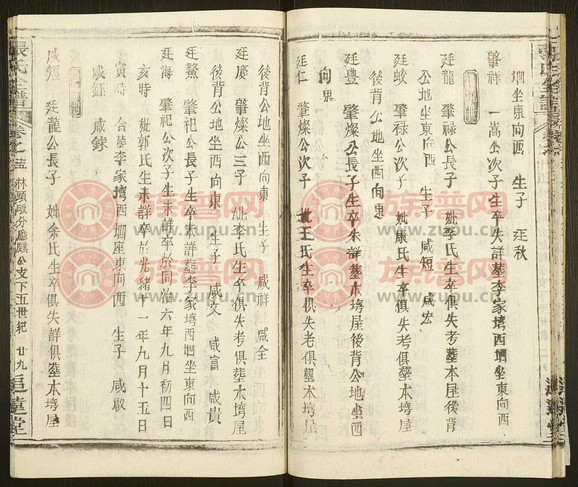 堋坐東向西 生子 廷秋
肇祥 一嵩公次子生卒失詳墓李家塆西堋坐東向西
廷龍 肇祿公長子 妣李氏生卒俱失考墓本塆屋後背
公地坐東向西 生子 咸短 咸宏
廷蛟 肇祿公次子 妣康氏生卒俱失考俱墓本塆屋
後背公地坐西向東
廷豊 肇燦公長子生卒失詳墓本塆屋後背公地坐西
向東
廷仁 肇燦公次子 妣王氏生卒俱失考俱墓本塆屋
後背公地坐西向東 生子 咸祥 咸全
廷慶 肇燦公三子 妣李氏生卒俱失考俱墓本塆屋
後背公地坐西向東 生子 咸文 咸富 咸貴
廷鰲 肇祀公長子生卒未詳墓李家塆西堋坐東向西
廷海 肇祀公次子生未詳卒於同治六年九月初四日
亥時 妣郭氏生未詳卒於光緒十一年九月十五日
寅時 合墓李家塆西堋座東向西 生子 咸啟
咸鈺 咸錸
咸短 廷龍公長子 妣余氏生卒俱失詳俱墓本塆屋
張氏宗譜 卷之 林頭墩分應麒公支下五世紀 廿九 追遠堂
族譜网
zupu.cn